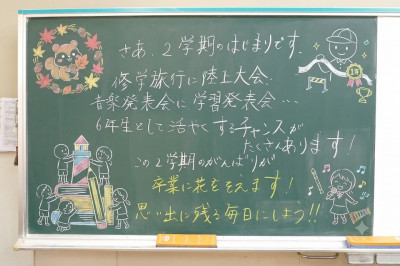 さあ、2学期のはじまりです。
修学旅行に陸上大会、
音楽発表会に学習発表会…
6年生として活やくするチャンスが
たくさんあります！
この2学期のがんばりが
卒業に花をそえます！
思い出に残る毎日にしよう!!